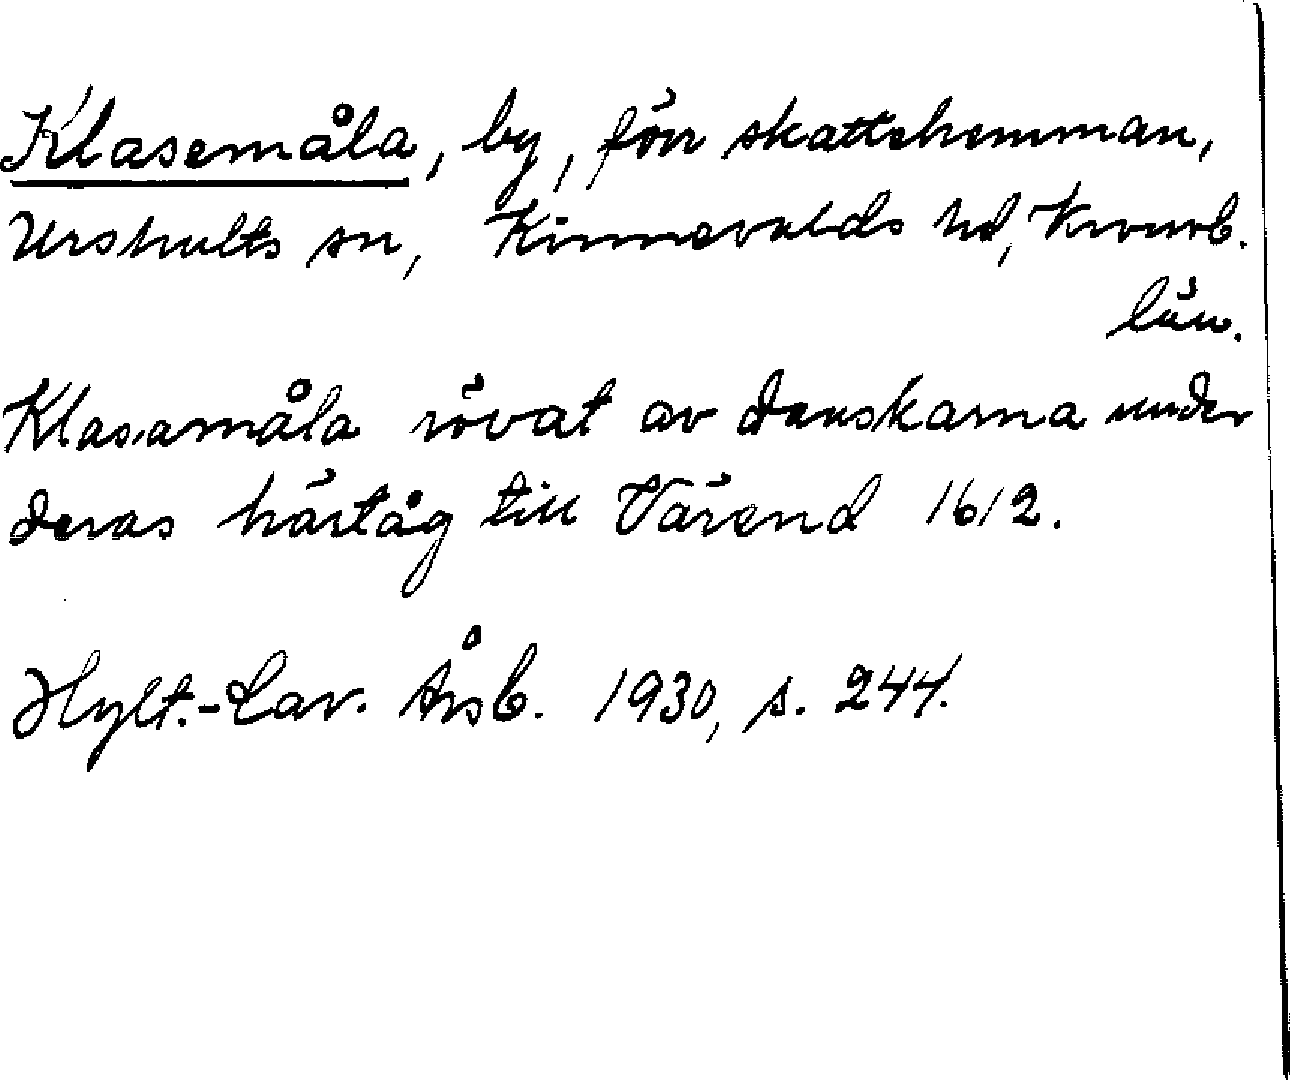 Klasemåla, by, förr skattehemman,
Urshults sn, Kinnevalds hd, Kronob.
län.
Klasamåla rövat av danskarna under
deras härtåg till Värend 1612.
Hylt.-Cav. Årsb. 1930, s. 244.